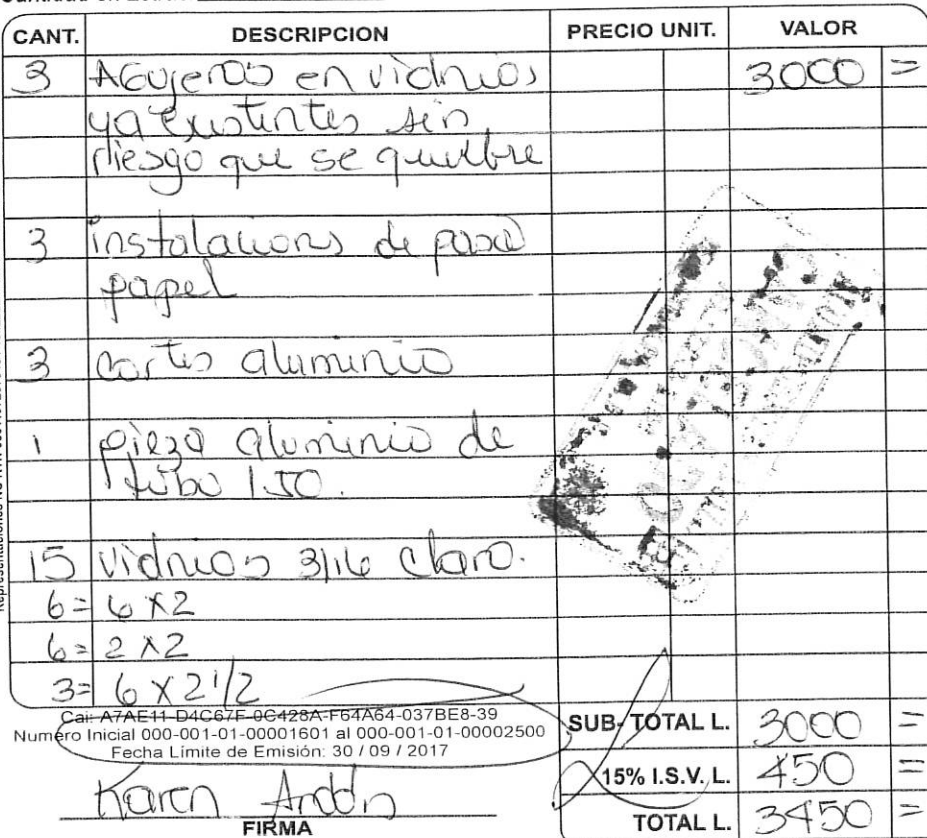 CANT. DESCRIPCION PRECIO UNIT. VALOR
3 Agujeros en vidrios 3000 =
ya existentes sin
riesgo que se quiebre
3 instalacions de pasa
papel
3 cortes aluminio
1 pieza aluminio de
tubo 1.50.
15 vidrios 3/16 claro.
6= 6 x2
6= 2 x2
3= 6 x 2 1/2
Cai: A7AE11-D4C67F-0C428A-F64A64-037BE8-39
Numero Inicial 000-001-01-00001601 al 000-001-01-00002500
Fecha Límite de Emisión: 30 / 09 / 2017
SUB- TOTAL L. 3000 =
15% I.S.V. L. 450 =
TOTAL L. 3450 =
Karen
FIRMA